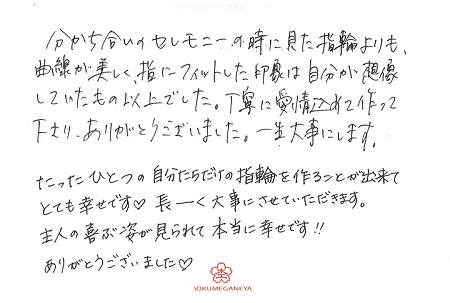 分かち合いのセレモニーの時に見た指輪よりも、
曲線が美しく、指にフィットした印象は自分が想像
していたもの以上でした。丁寧に愛情込めて作って
下さり、ありがとうございました。一生大事にします。
たったひとつの自分たちだけの指輪を作ることが出来て
とても幸せです♡ 長ーく大事にさせていただきます。
主人の喜ぶ姿が見られて本当に幸せです!!
ありがとうございました♡
MOKUMEGANEYA